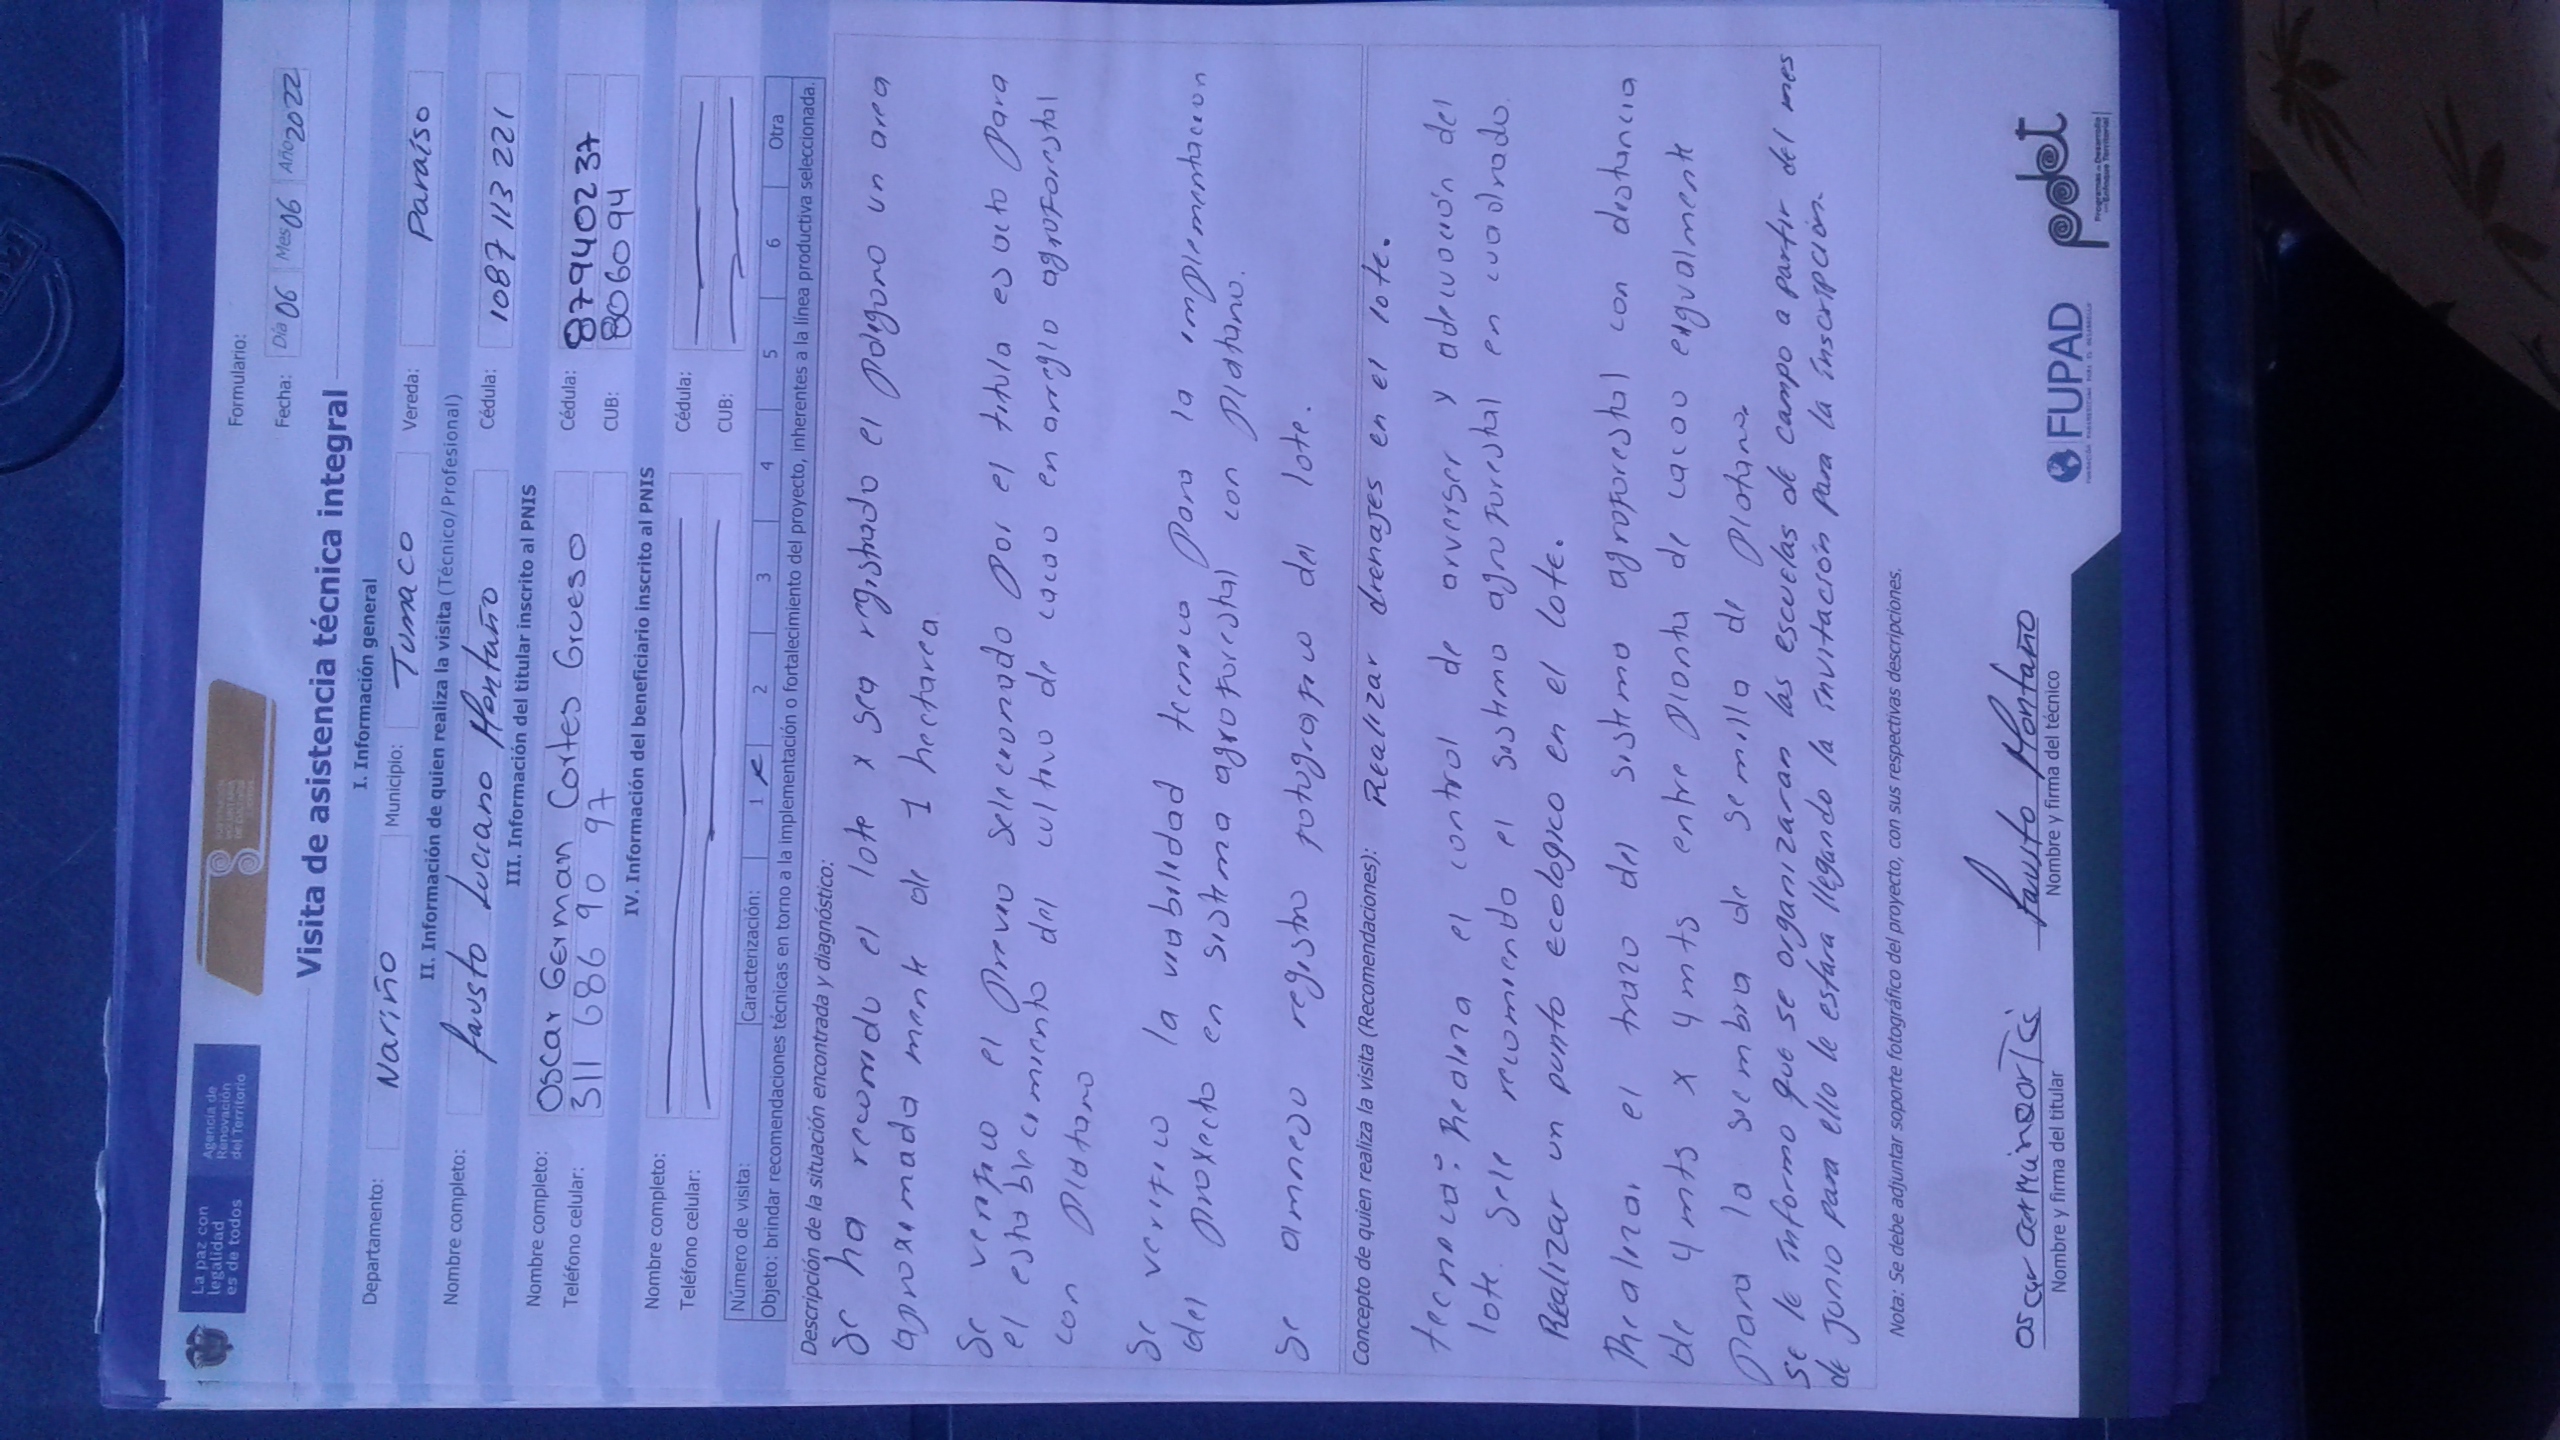 La paz con
legalidad
es de todos
Agencia de
Renovación
del Territorio
Formulario:
Fecha: Día 06 Mes 06 Año 2022
Visita de asistencia técnica integral
I. Información general
Departamento: Nariño Municipio: Tumaco Vereda: Paraíso
II. Información de quien realiza la visita (Técnico/Profesional)
Nombre completo: Fausto Luciano Montaño Cédula: 1087113221
III. Información del titular inscrito al PNIS
Nombre completo: Oscar German Cortes Grueso Cédula: 87940237
Teléfono celular: 311 686 90 97 CUB: 806094
IV. Información del beneficiario inscrito al PNIS
Nombre completo: Cédula:
Teléfono celular: CUB:
Número de visita: Caracterización: 1 x 2 3 4 5 6 Otra
Objeto: brindar recomendaciones técnicas en torno a la implementación o fortalecimiento del proyecto, inherentes a la línea productiva seleccionada.
Descripción de la situación encontrada y diagnóstico:
Se ha recorrido el lote y sea registrado el poligono un area
aproximada mente de 1 hectarea
Se verifico el previo seleccionado por el titula es acto para
el establecimiento del cultivo de cacao en arreglo agroforestal
con platano
Se verifico la viabilidad tecnica para la implementacion
del proyecto en sistema agroforestal con platano.
Se annexo registro fotografico del lote.
Concepto de quien realiza la visita (Recomendaciones): Realizar drenajes en el lote.
tecnica: Realiza el control de arverser y adecuación del
lote. Sele recomienda el sistema agroforestal en cuadrado.
Realizar un punto ecologico en el lote.
Realizar el trazo del sistema agroforestal con distancia
de 4 mts x 4 mts entre planta de cacao engualmente
para la siembra de semilla de platano.
se le informo que se organizaran las escuelas de campo a partir del mes
de junio para ello le estara llegando la invitación para la inscripción.
Nota: Se debe adjuntar soporte fotográfico del proyecto, con sus respectivas descripciones.
Fausto Montaño
Nombre y firma del titular
Nombre y firma del técnico
FUPAD
pdet
Programas de Desarrollo
con Enfoque Territorial